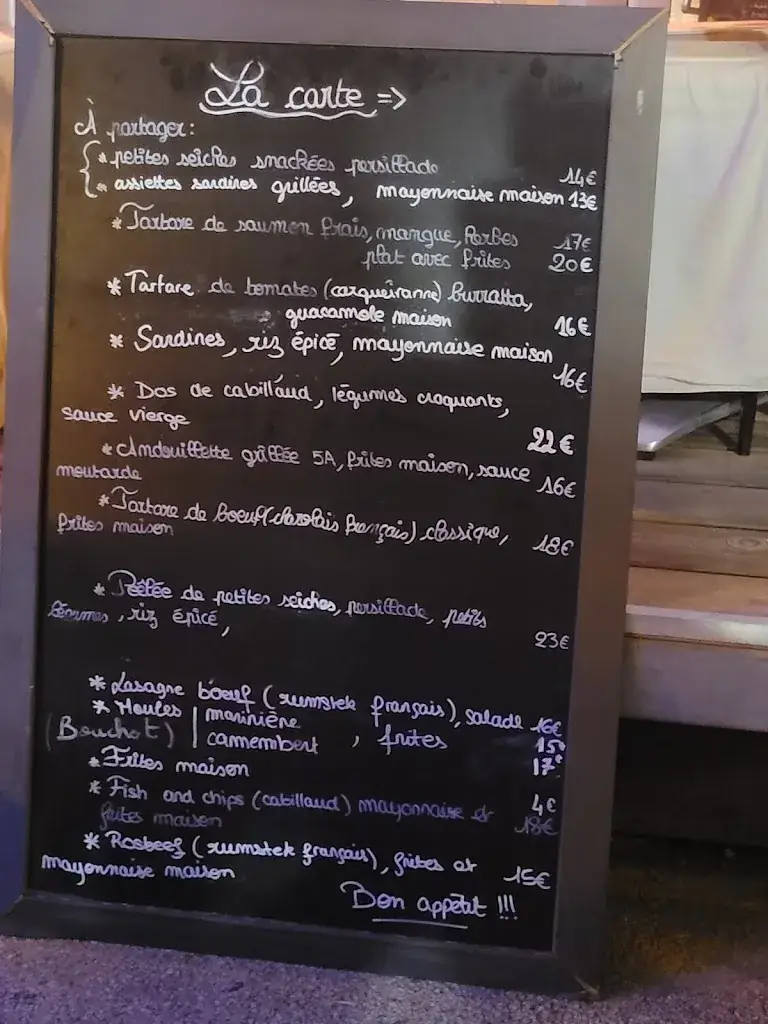 La carte =>
À partager:
* petites seiches snackées persillade 14€
* assiettes sardines grillées, mayonnaise maison 13€
* Tartare de saumon frais, mangue, herbes 17€
plat avec frites 20€
* Tartare de tomates (carqueiranne) burratta,
guacamole maison 16€
* Sardines, riz épicé, mayonnaise maison
16€
* Dos de cabillaud, légumes craquants,
sauce vierge
22€
* Andouillette grillée 5A, frites maison, sauce
moutarde 16€
* Tartare de boeuf (charolais français) classique,
frites maison 18€
* Poêlée de petites seiches, persillade, petits
légumes, riz épicé,
23€
* Lasagne boeuf (rumstek français), salade 16€
* Moules | marinière 15€
(Bouchot) | camembert, frites 17€
* Frites maison
4€
* Fish and chips (cabillaud) mayonnaise et
frites maison 18€
* Rosbeef (rumstek français), frites et
mayonnaise maison 15€
Bon appétit !!!